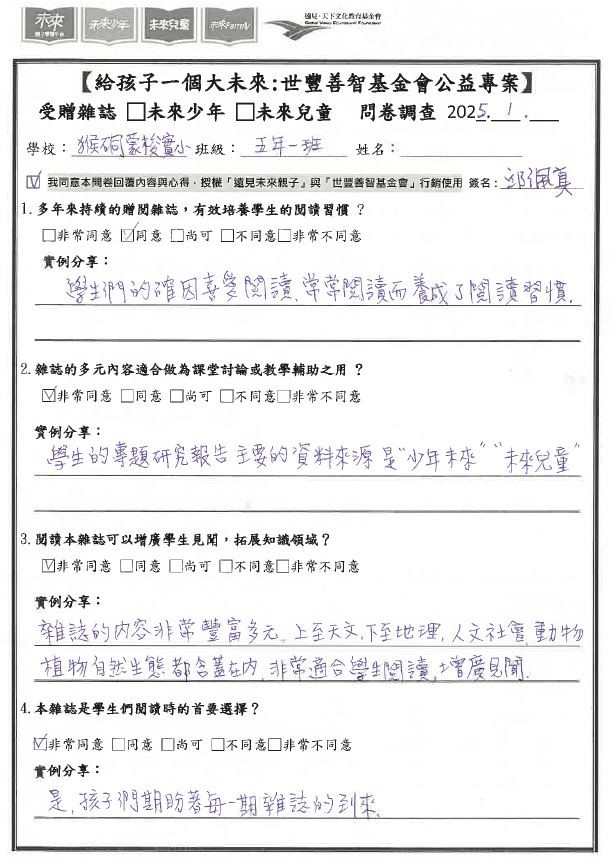 未來
親子學習平台
未來少年
未來兒童
未來Family
遠見・天下文化教育基金會
Global Views Educational Foundation
【給孩子一個大未來:世豐善智基金會公益專案】
受贈雜誌 □未來少年 □未來兒童 問卷調查 2025.1.
學校：猴硐蒙校實小 班級：五年一班 姓名：
☑ 我同意本問卷回覆內容與心得，授權「遠見未來親子」與「世豐善智基金會」行銷使用 簽名：邱佩真
1.多年來持續的贈閱雜誌，有效培養學生的閱讀習慣？
□非常同意 ☑同意 □尚可 □不同意□非常不同意
實例分享：
學生們的確因喜愛閱讀、常常閱讀而養成了閱讀習慣.
2.雜誌的多元內容適合做為課堂討論或教學輔助之用？
☑非常同意 □同意 □尚可 □不同意□非常不同意
實例分享：
學生的專題研究報告主要的資料來源是"少年未來""未來兒童"
3.閱讀本雜誌可以增廣學生見聞，拓展知識領域？
☑非常同意 □同意 □尚可 □不同意□非常不同意
實例分享：
雜誌的內容非常豐富多元。上至天文,下至地理,人文社會,動物
植物自然生態都含蓋在內,非常適合學生閱讀,增廣見聞.
4.本雜誌是學生們閱讀時的首要選擇？
☑非常同意 □同意 □尚可 □不同意□非常不同意
實例分享：
是,孩子們期盼著每一期雜誌的到來.